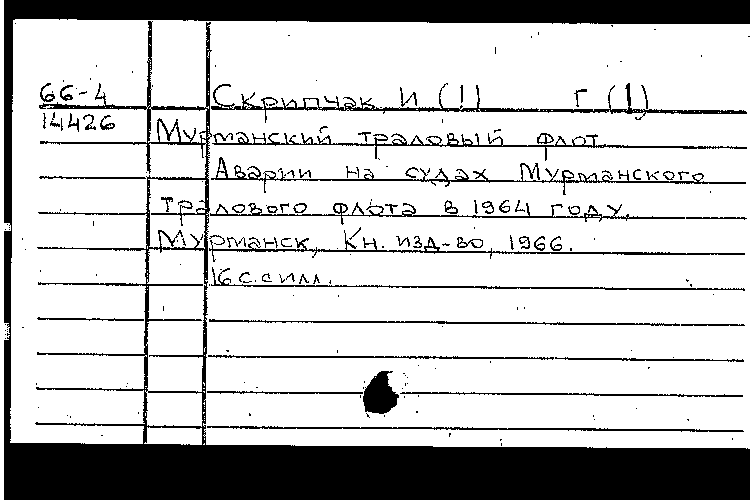 66-4 Скрипчак, И (!) Г (!)
14426 Мурманский траловый флот
Аварии на судах Мурманского
тралового флота в 1964 году.
Мурманск, Кн. изд-во, 1966.
16 с. с илл.